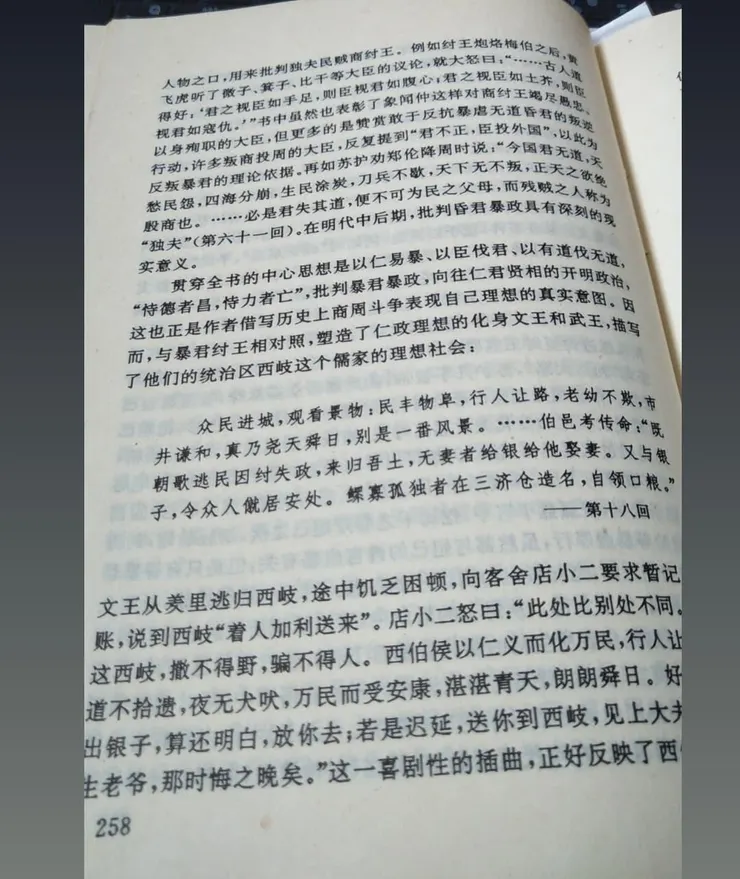 人物之口，用来批判独夫民贼商纣王。例如纣王炮烙梅伯之后，黄
飞虎听了微子、箕子、比干等大臣的议论，就大怒曰：“……古人道
得好：‘君之视臣如手足，则臣视君如腹心；君之视臣如土芥，则臣
视君如寇仇。’”书中虽然也表彰了象闻仲这样对商纣王竭尽愚忠、
以身殉职的大臣，但更多的是赞赏敢于反抗暴虐无道昏君的叛逆
行动，许多叛商投周的大臣，反复提到“君不正，臣投外国”，以此为
反叛暴君的理论依据。再如苏护劝郑伦降周时说：“今国君无道，天
愁民怨，四海分崩，生民涂炭，刀兵不歇，天下无不叛，正天之欲绝
殷商也。……必是君失其道，便不可为民之父母，而残贼之人称为
“独夫”（第六十一回）。在明代中后期，批判昏君暴政具有深刻的现
实意义。
贯穿全书的中心思想是以仁易暴、以臣伐君、以有道伐无道，
“恃德者昌，恃力者亡”，批判暴君暴政，向往仁君贤相的开明政治，
这也正是作者借写历史上商周斗争表现自己理想的真实意图。因
而，与暴君纣王相对照，塑造了仁政理想的化身文王和武王，描写
了他们的统治区西岐这个儒家的理想社会：
众民进城，观看景物：民丰物阜，行人让路，老幼不欺，市
井谦和，真乃尧天舜日，别是一番风景。……伯邑考传命：“既
朝歌逃民因纣失政，来归吾土，无妻者给银给他娶妻。又与银
子，令众人僦居安处。鳏寡孤独者在三济仓造名，自领口粮。”
——第十八回
文王从羑里逃归西岐，途中饥乏困顿，向客舍店小二要求暂记
账，说到西岐“着人加利送来”。店小二怒曰：“此处比别处不同。
这西岐，撒不得野，骗不得人。西伯侯以仁义而化万民，行人让
道不拾遗，夜无犬吠，万民而受安康，湛湛青天，朗朗舜日。好
出银子，算还明白，放你去；若是迟延，送你到西岐，见上大夫
生老爷，那时悔之晚矣。”这一喜剧性的插曲，正好反映了西
258